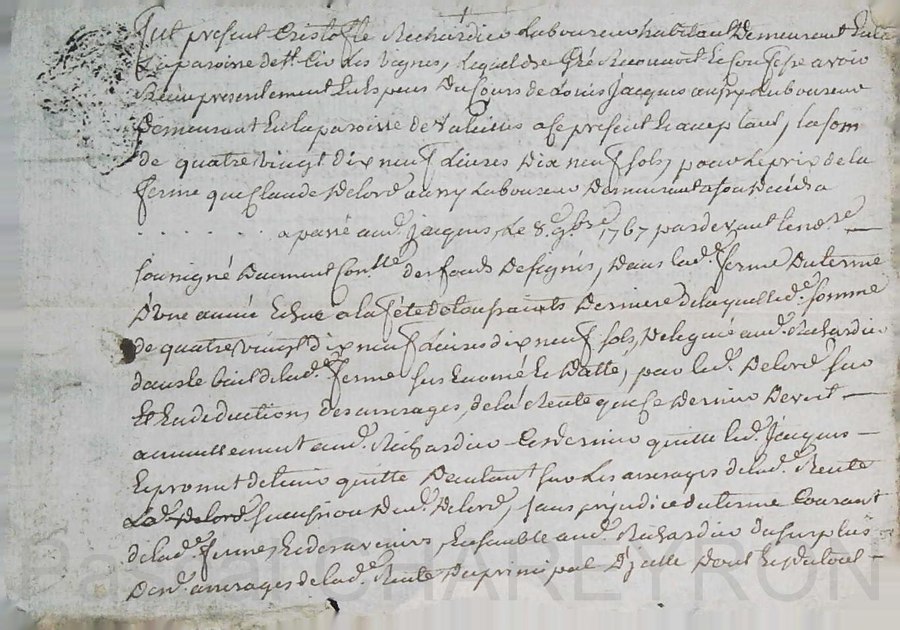 Fut present Cristofle Richardier Laboureur habitant Demeurant
La paroisse de St Cir Les vignes, Lequel de Gré Reconnoit Et Confesse avoir
Recu presentement Du Cours de Louis Jacques aussy Laboureur
Demeurant En La paroisse de Valeilles a Ce present Et acceptant, La som
de quatre vingt Dix neuf Livres Dix neuf sols, pour Le prix de La
ferme que Claude Delord aussy Laboureur Demeurant
. . . . . . . a passé aud. Jacques, Le 8e 9bre 1767 par devant Le no.re
soussigné Dument Conllé des fonds Designés, Dans Lad.e ferme Du terme
D'une année Echue a La fête de toussaints Derniere de Laquelle d.e somme
de quatre vingt dix neuf Livres dix neuf sols, Delegué aud. Richardier
dans Le bail de Lad.e ferme sus Enoncé Et Datté, par Led. Delord sur
Et En deduction des arrerages, de La Rente que Ce Dernier Devoit
annuellement aud. Richardier Ce dernier quitte Led. Jacques
Et promet de tenir quitte D'autant sur Les arrerages de Lad.e Rente
La succession Dud. Delord, sans préjudice du terme Courant
de Lad.e ferme, Et des avenirs, Ensemble aud. Richardier du surplus
Des d. arrerages de Lad.e Rente Du principal D'jcelle Dont Et Du tout
Pascal CHAREYRON